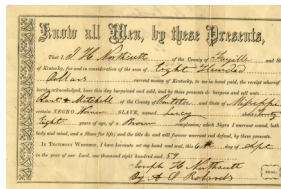 Know all Men, by these Presents,
That I J H Northcutt of the County of Fayette and St
of Kentucky, for and in consideration of the sum of Eight Hundred
Dollars current money of Kentucky, to me in hand paid, the receipt whereof
hereby acknowledged, have this day bargained and sold, and by these presents do bargain and sell unto
& Mitchell of the County of and State of Mississippi
certain NEGRO SLAVE, named Lucy aged
Eight years of age, of a Brown which Negro I warrant sound, both
body and mind, and a Slave for life; and the title do and will forever warrant and defend, by these presents.
IN TESTIMONY WHEREOF, I have hereunto set my hand and seal, this 6th day of Sept
in the year of our Lord, one thousand eight hundred and 59
Joseph H Northcutt
By
SEAL